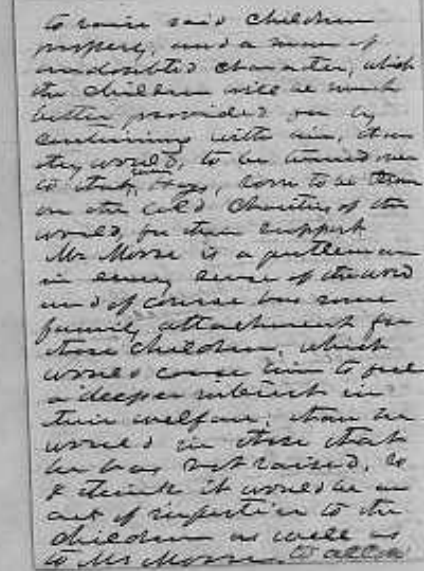 to raise said children
properly, and a man of
undoubted character, which
the children will be much
better provided for by
continuing with him, than
they would, to be turned over
to that, or to be thrown
on the cold charities of the
world, for their support
Mr Moore is a gentleman
in every sense of the word
and of course has some
family attachment for
those children, which
would cause him to feel
a deeper interest in
their welfare, than he
would in those that
he has not raised, &
I think it would be an
act of injustice to the
children as well as
to Mr Moore to allow